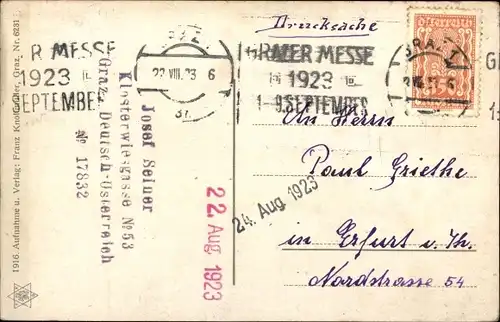 Drucksache
R MESSE
1923
SEPTEMBER
GRAZ
22 VIII. 23 6
GRAZER MESSE
1923
1-9. SEPTEMBER
GRAZ
Österreich
G
1-
Josef Seiner
Klosterwiesgasse № 53
Graz, Deutsch-Österreich
№ 17832
22 Aug 1923
24. Aug. 1923
An Herrn
Paul Griethe
in Erfurt i. Th.
Nordstrasse 54
1916. Aufnahme u. Verlag: Franz Knollmüller, Graz, Nr. 6231